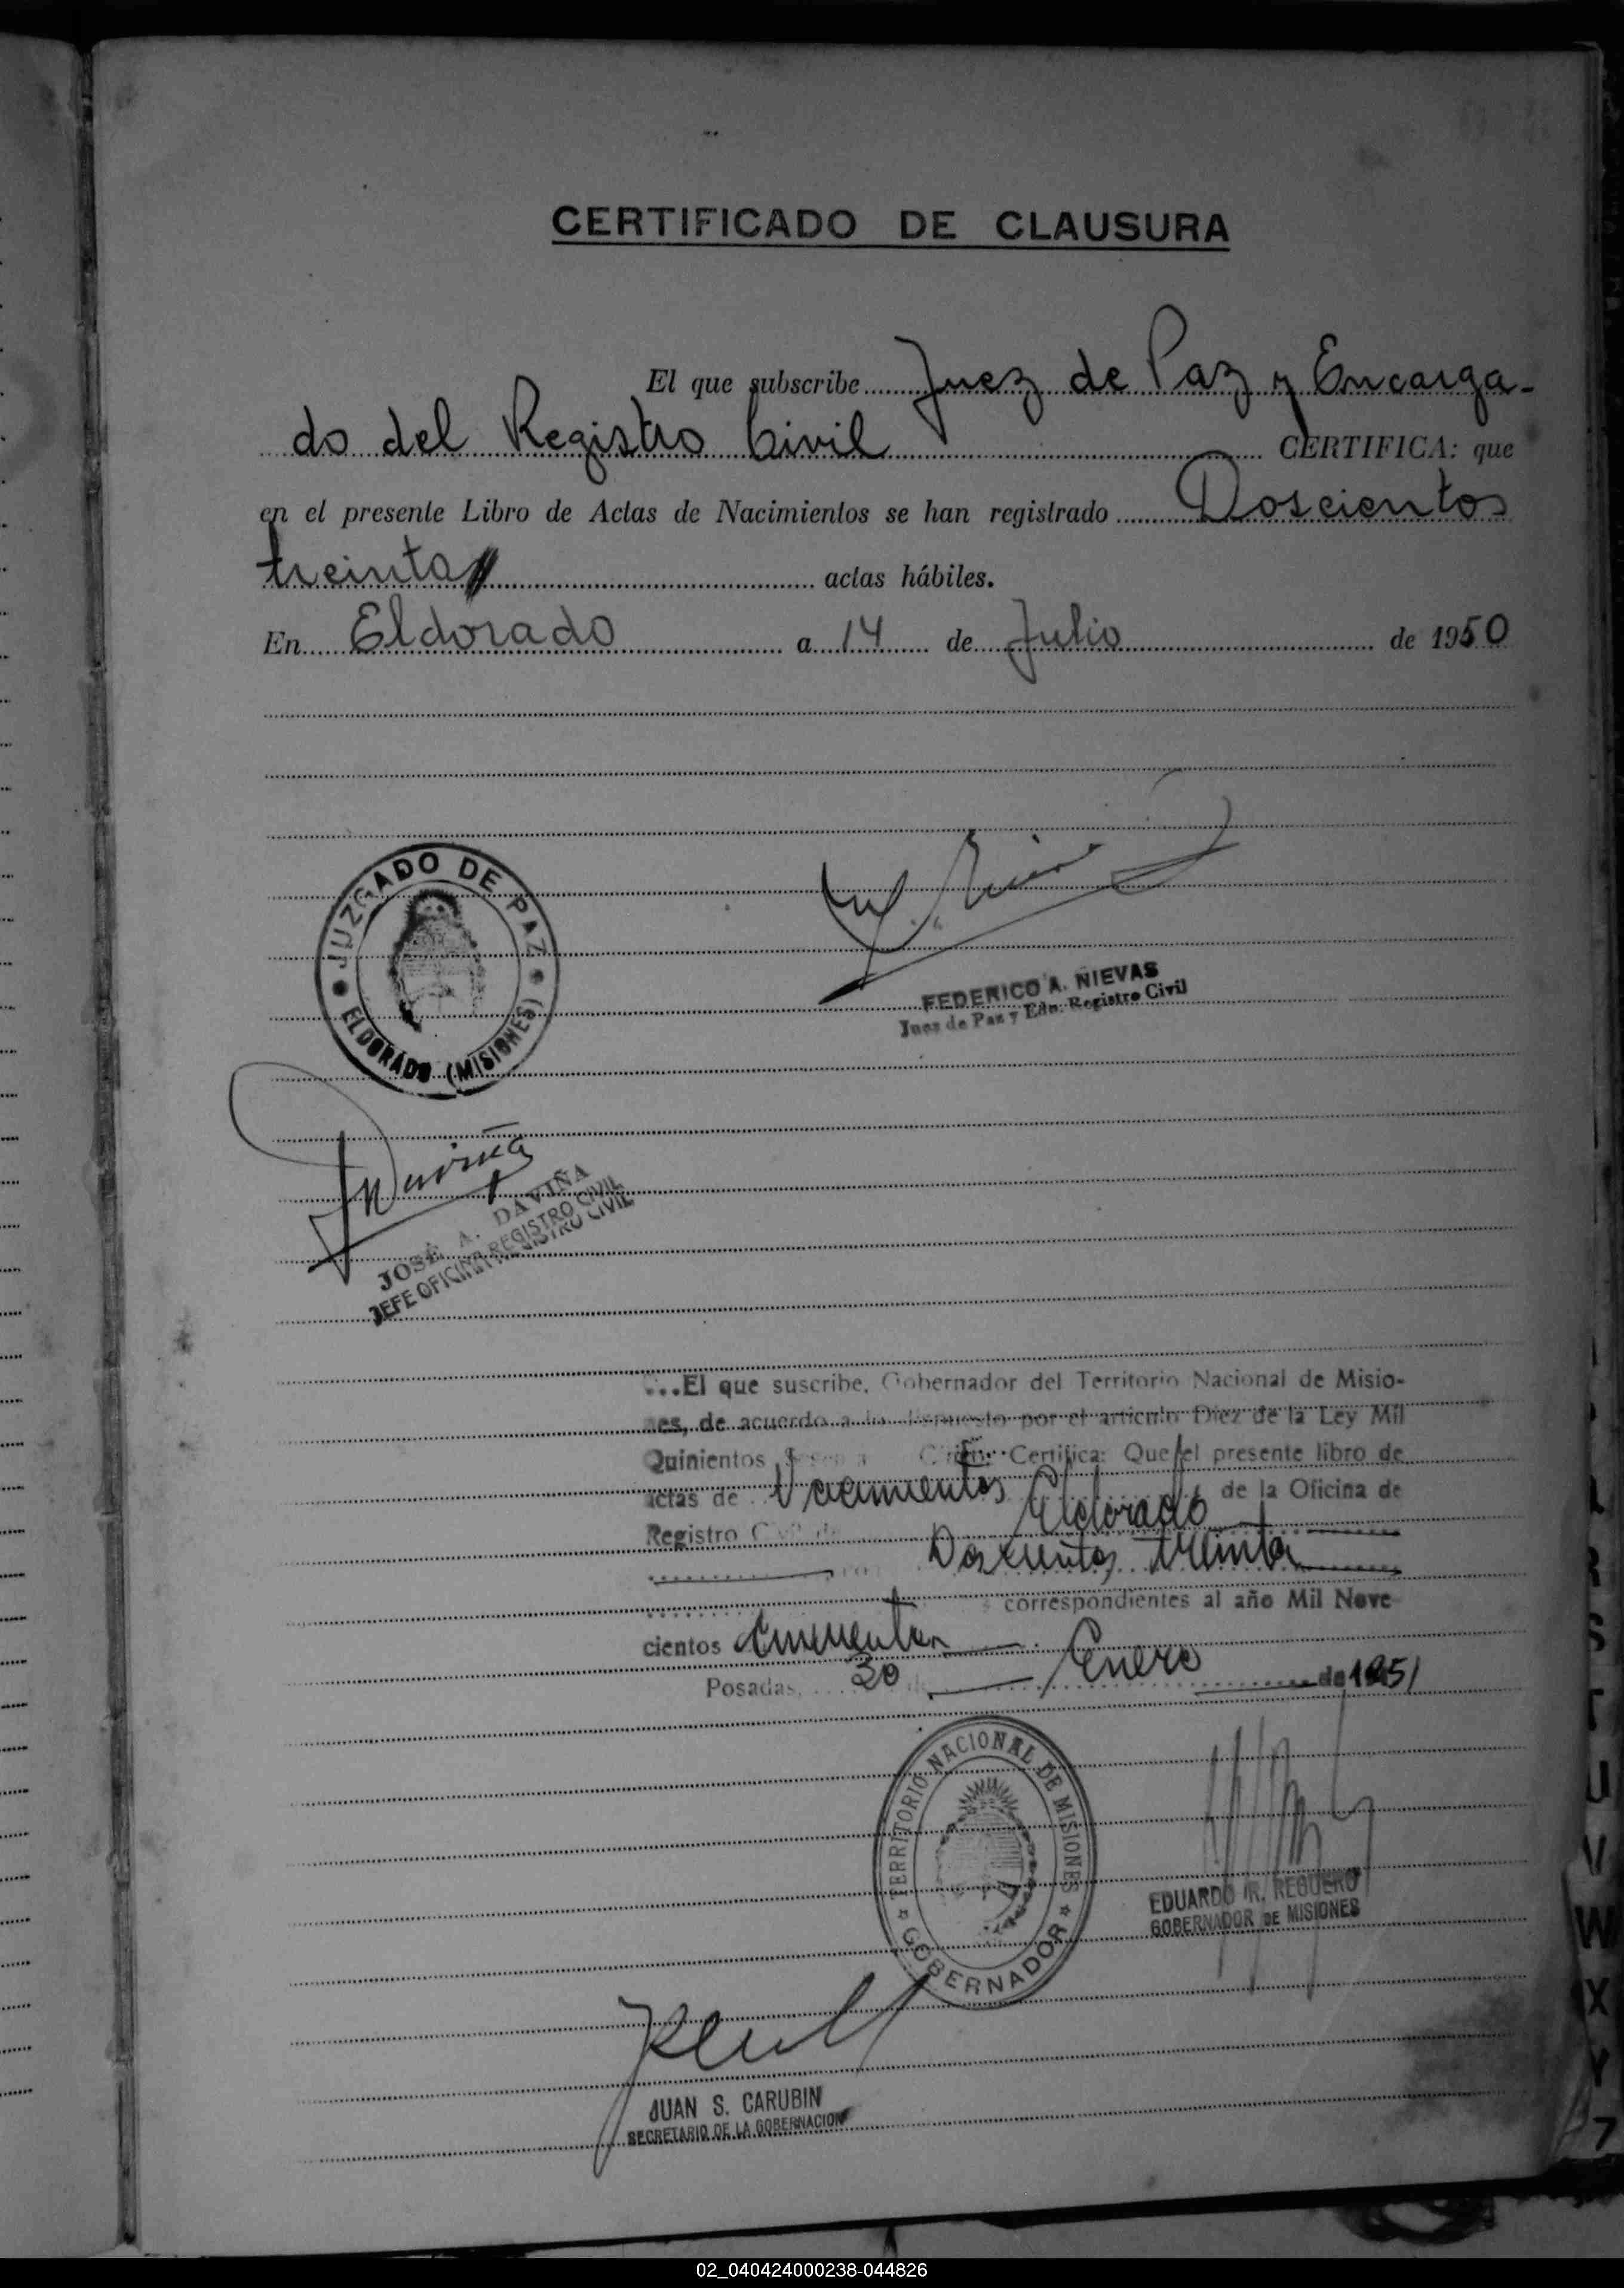 CERTIFICADO DE CLAUSURA
El que subscribe Juez de Paz y Encarga-
do del Registro Civil CERTIFICA: que
en el presente Libro de Actas de Nacimientos se han registrado Doscientos
treinta actas hábiles.
En Eldorado a 14 de Julio de 1950
JUZGADO DE PAZ
ELDORADO (MISIONES)
FEDERICO A. NIEVAS
Juez de Paz y Edo. Registro Civil
Daviña
JOSÉ A. DAVIÑA
JEFE OFICINA REGISTRO CIVIL
...El que suscribe, Gobernador del Territorio Nacional de Misio-
nes, de acuerdo a lo dispuesto por el artículo Diez de la Ley Mil
Quinientos Certifica: Que el presente libro de
actas de Nacimientos de la Oficina de
Registro Civil de Eldorado
Doscientos treinta
correspondientes al año Mil Nove-
cientos cincuenta
Posadas, 30 de Enero de 1951
TERRITORIO NACIONAL DE MISIONES
GOBERNADOR
EDUARDO R. REGUERO
GOBERNADOR DE MISIONES
JUAN S. CARUBIN
SECRETARIO DE LA GOBERNACION
R
S
T
U
V
W
X
Y
Z
02_040424000238-044826